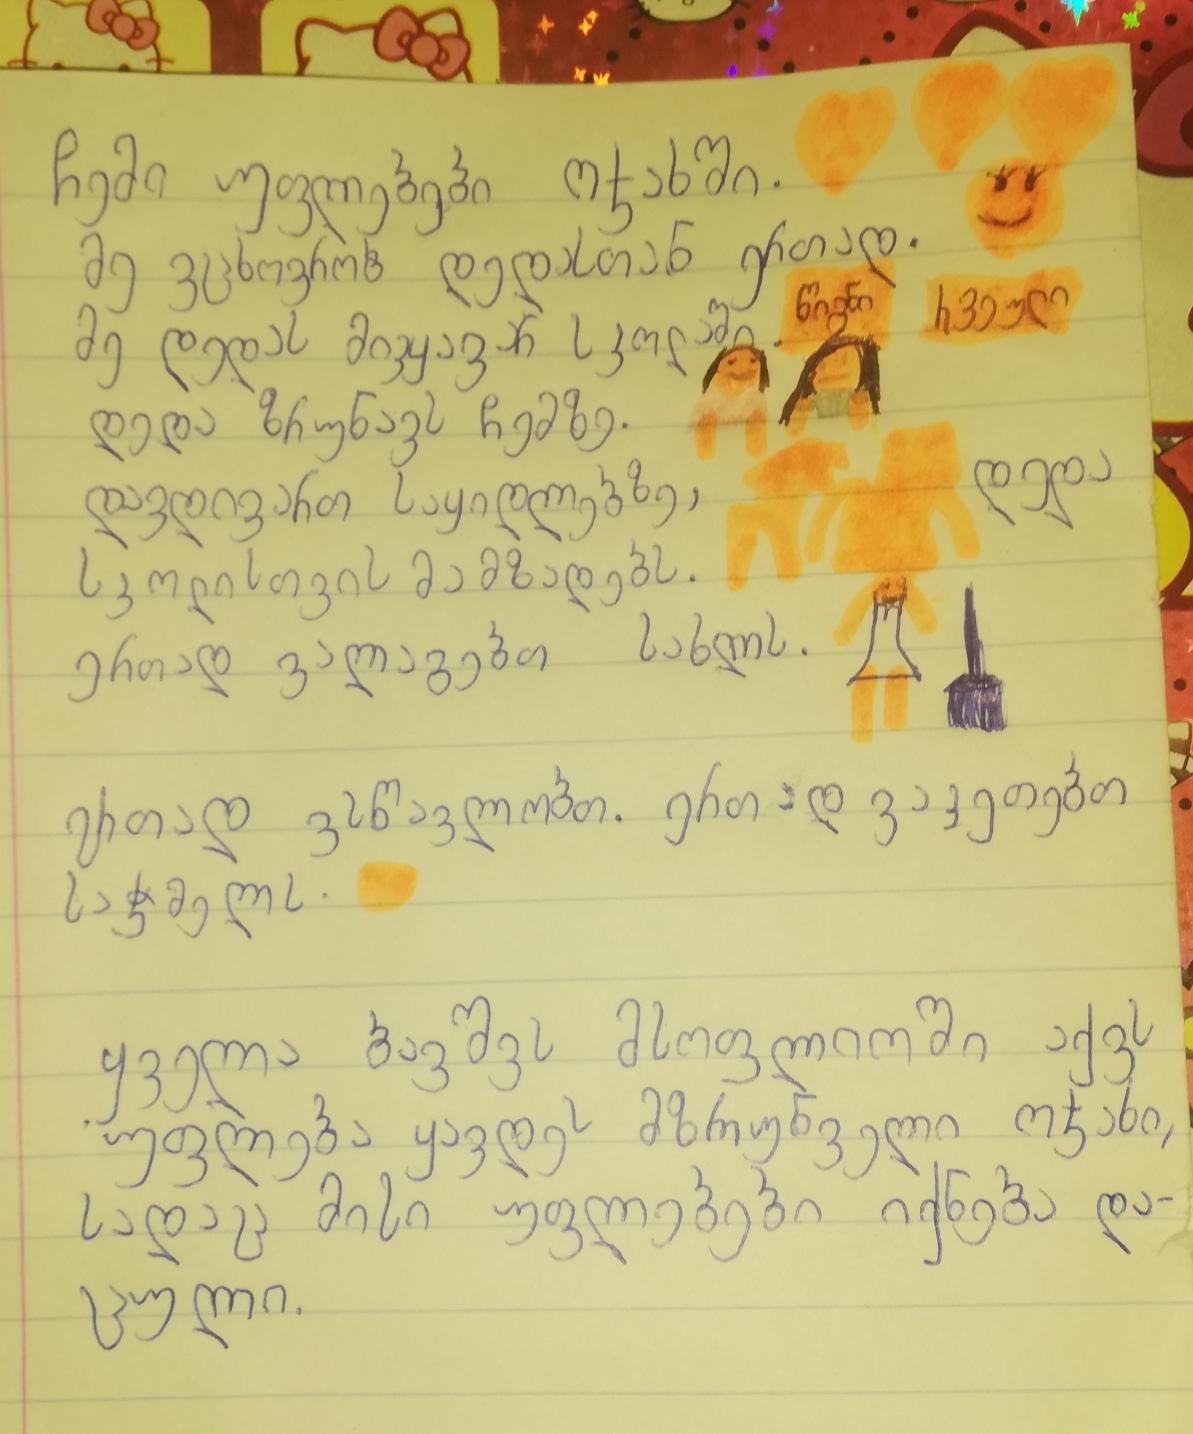 ჩემი უფლებები ოჯახში.
მე ვცხოვრობ დედასთან ერთად.
წიგნი რვეული
მე დედას მივყავარ სკოლაში.
დედა ზრუნავს ჩემზე.
დავდივართ საყიდლებზე, დედა
სკოლისთვის მამზადებს.
ერთად ვალაგებთ სახლს.
ერთად ვსწავლობთ. ერთად ვაკეთებთ
საჭმელს.
ყველა ბავშვს მსოფლიოში აქვს
უფლება ყავდეს მზრუნველი ოჯახი,
სადაც მისი უფლებები იქნება და-
ცული.